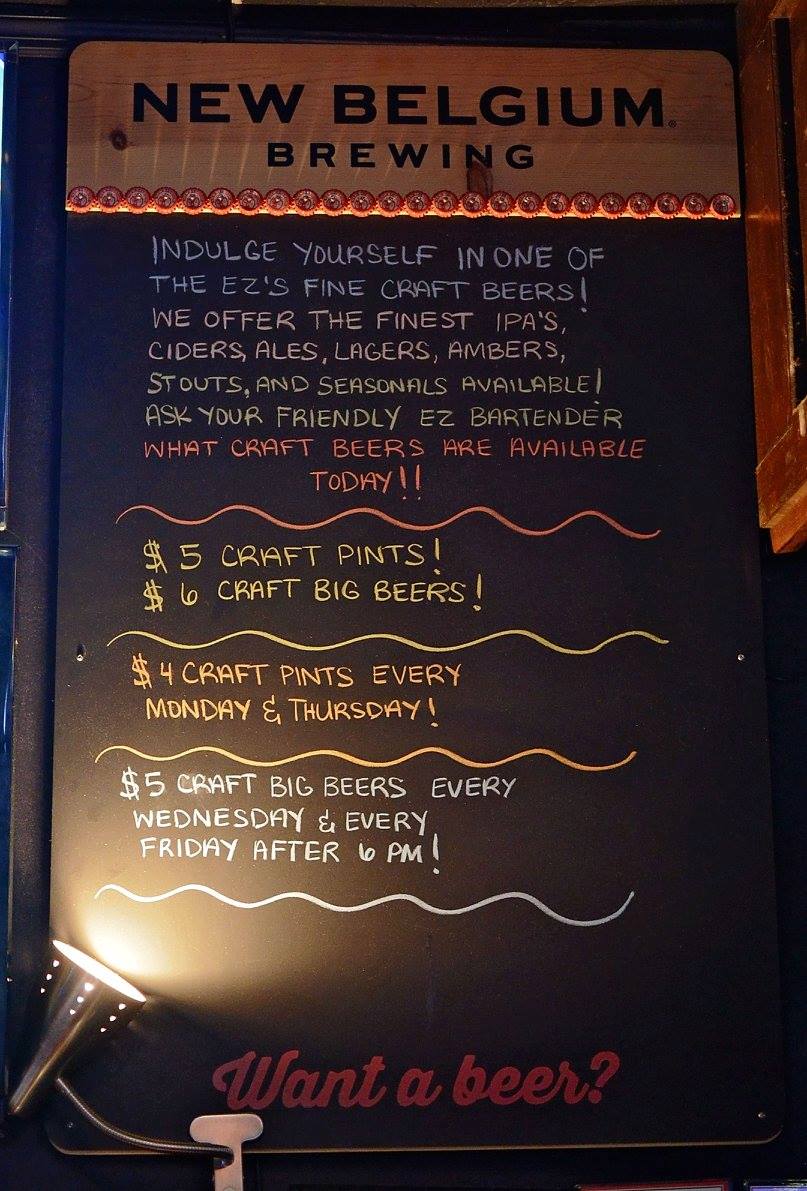 NEW BELGIUM®
BREWING
INDULGE YOURSELF IN ONE OF
THE EZ'S FINE CRAFT BEERS!
WE OFFER THE FINEST IPA'S,
CIDERS, ALES, LAGERS, AMBERS,
STOUTS, AND SEASONALS AVAILABLE!
ASK YOUR FRIENDLY EZ BARTENDER
WHAT CRAFT BEERS ARE AVAILABLE
TODAY!!
$5 CRAFT PINTS!
$6 CRAFT BIG BEERS!
$4 CRAFT PINTS EVERY
MONDAY & THURSDAY!
$5 CRAFT BIG BEERS EVERY
WEDNESDAY & EVERY
FRIDAY AFTER 6 PM!
Want a beer?